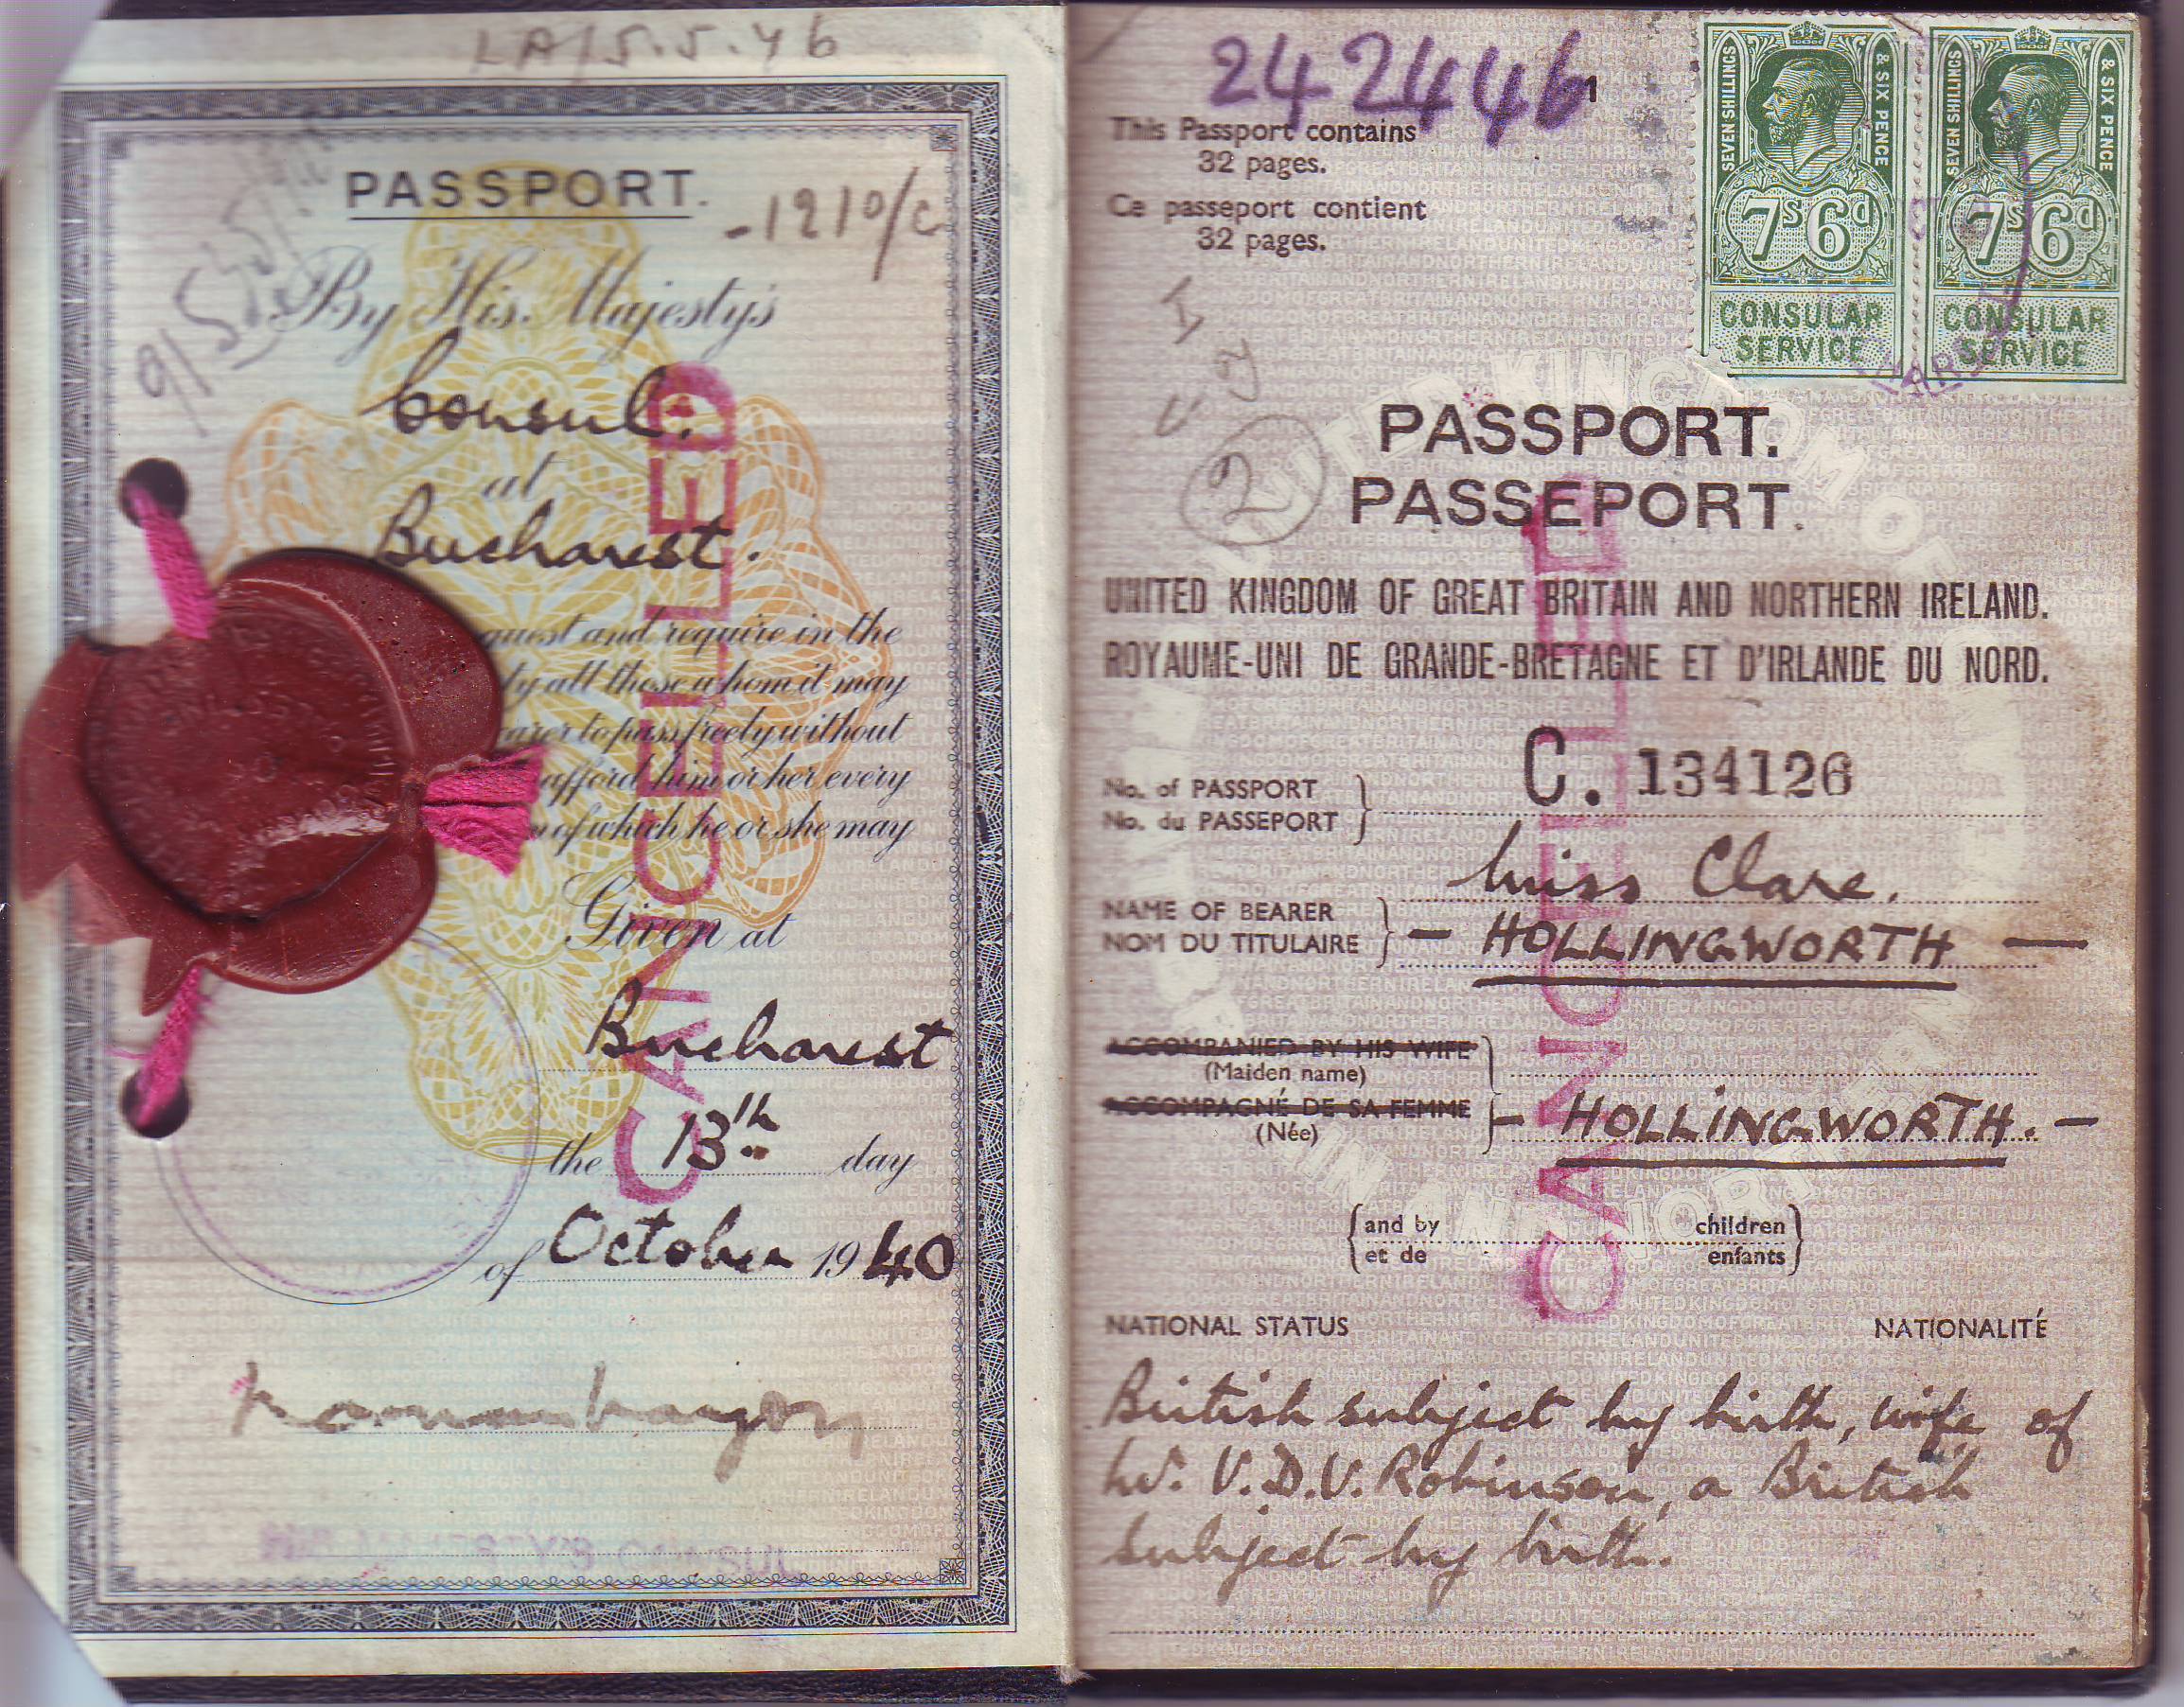 LA/5.5.46
PASSPORT.
-1210/c
By His Majesty's
Consul.
at
Bucharest.
quest and require in the
by all those whom it may
earer to pass freely without
afford him or her every
n of which he or she may
CANCELLED
Given at
Bucharest
the 13th day
of October 1940
242446
1
This Passport contains
32 pages.
Ce passeport contient
32 pages.
SEVEN SHILLINGS & SIX PENCE
7s 6d
CONSULAR
SERVICE
SEVEN SHILLINGS & SIX PENCE
7s 6d
CONSULAR
SERVICE
2
PASSPORT.
PASSEPORT.
UNITED KINGDOM OF GREAT BRITAIN AND NORTHERN IRELAND.
ROYAUME-UNI DE GRANDE-BRETAGNE ET D'IRLANDE DU NORD.
No. of PASSPORT
No. du PASSEPORT
C. 134126
NAME OF BEARER
NOM DU TITULAIRE
Miss Clare.
— HOLLINGWORTH —
ACCOMPANIED BY HIS WIFE
(Maiden name)
ACCOMPAGNÉ DE SA FEMME
(Née)
— HOLLINGWORTH. —
and by children
et de enfants
CANCELLED
NATIONAL STATUS NATIONALITÉ
British subject by birth, wife of
Mr. V.D.V. Robinson, a British
subject by birth.